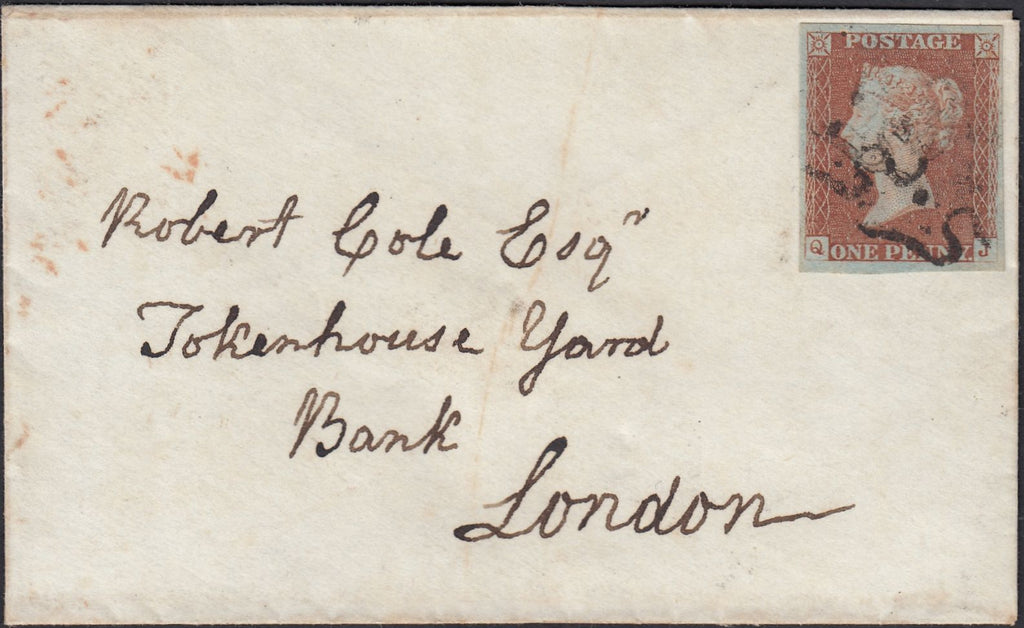 POSTAGE
Q ONE PENNY. J
Robert Cole Esqr
Tokenhouse Yard
Bank
London